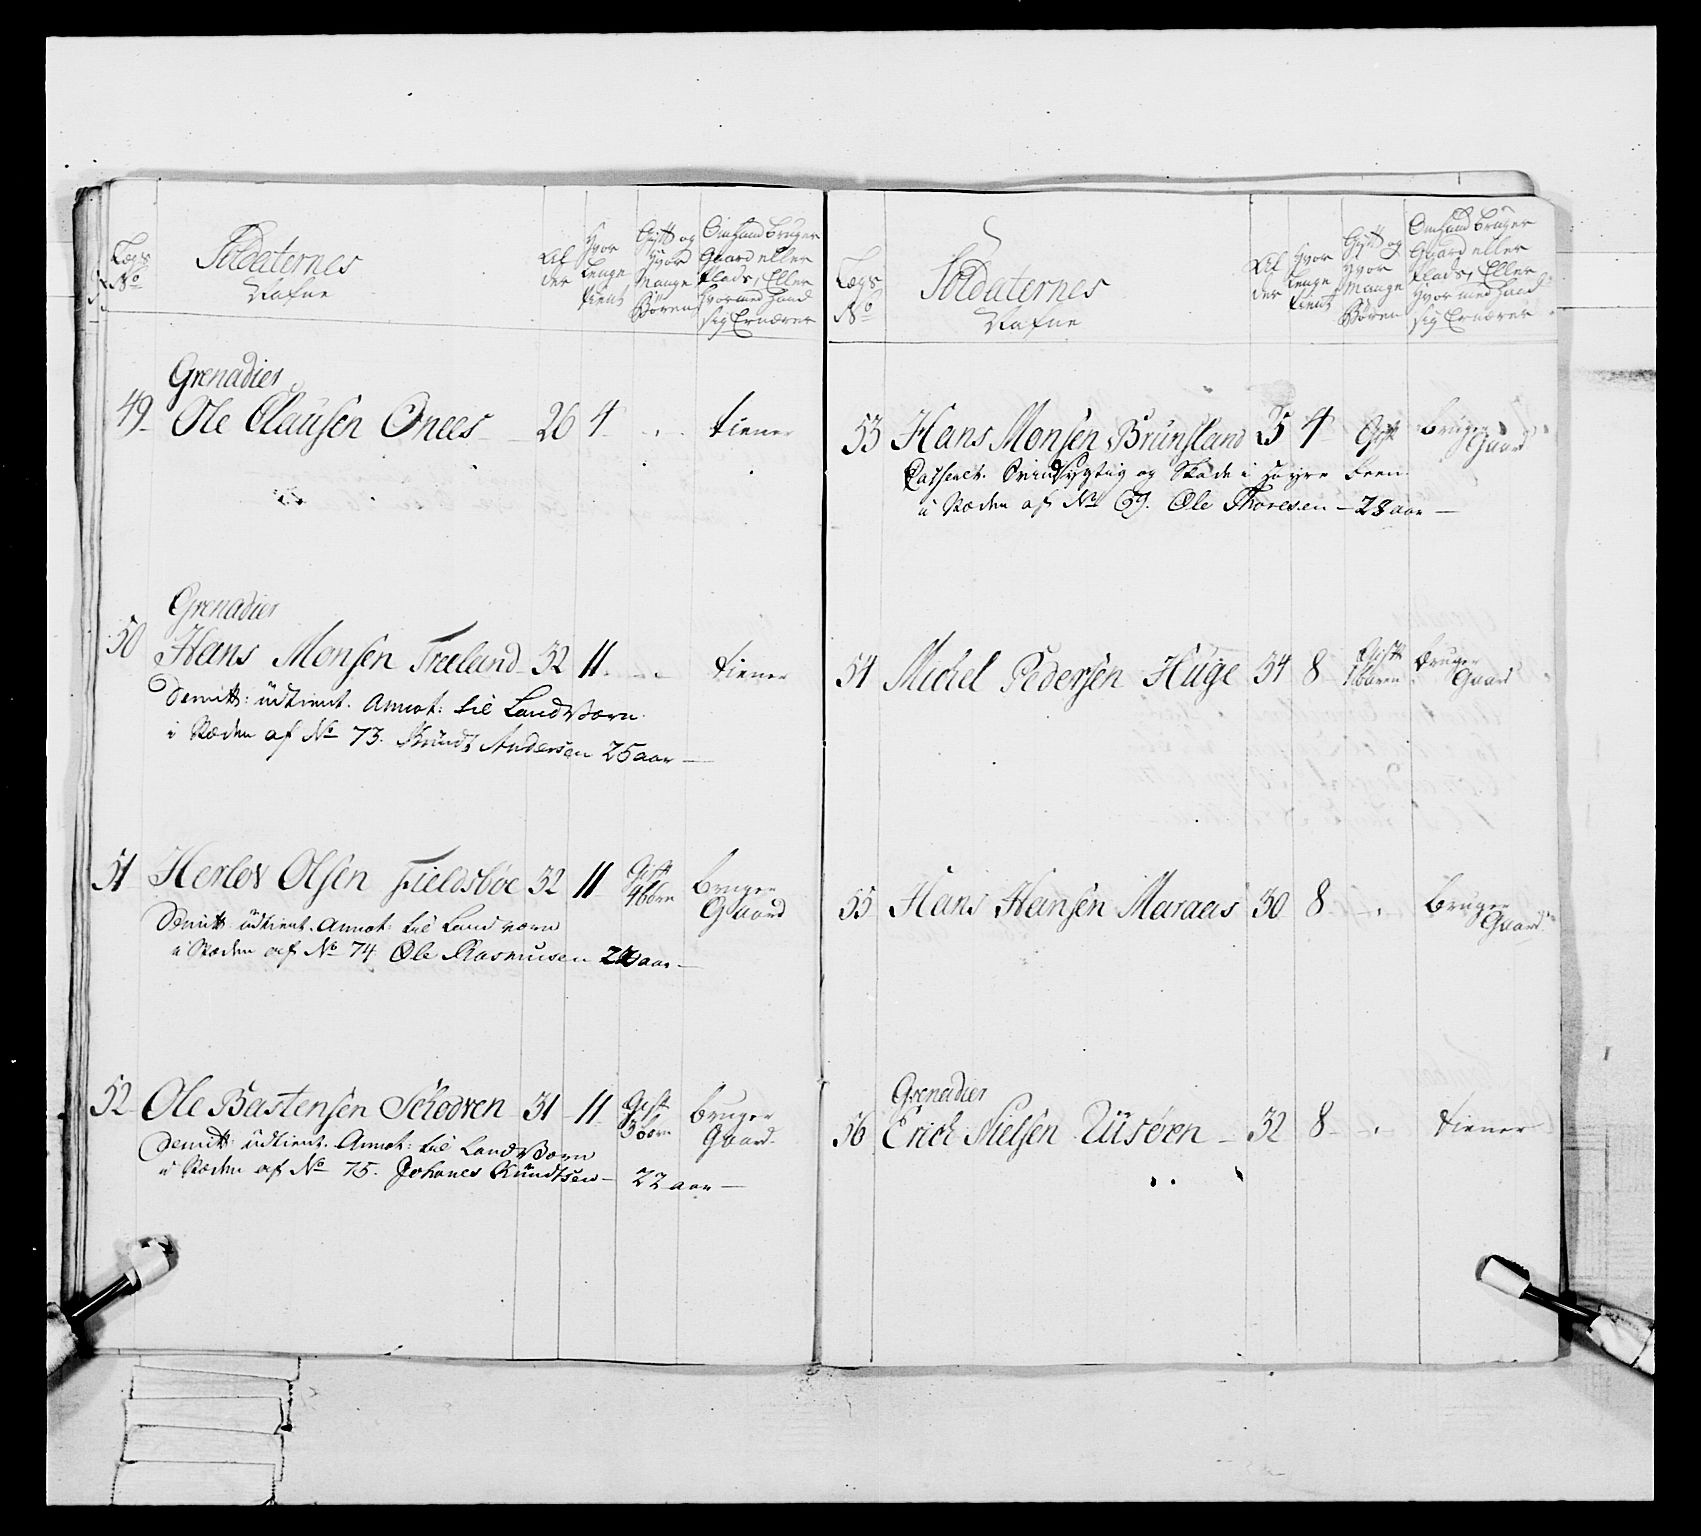 Legs
No
Soldaternes
Nafne
Al
der
Hvor
Lenge
tient
Gift og
Hvor
Mange
Børen
Om hand bruger
Gaard eller
Plads, Eller
Hvor med Hand
sig Ernærer
Grenadier
49 Ole Clausen Onees 26 4 tiener
Grenadier
50 Hans Monsen Treeland 32 11 tiener
Demitt: üdtient. Annot: til Land Værn
i Stæden af No 73. Knud Andersen 25 aar
51 Herlov Olsen Fieldsbøe 32 11 Gift 4 børn bruger Gaard
Demitt: üdtient. Annot: til Land værn
i Stæden af No 74 Ole Rasmusen aar
52 Ole Bastensen Schodven 31 11 Gift 3 børn bruger Gaard
Demitt: üdtient. Annot: til Land Værn
i Stæden af No 75. Johanes Knüdtsen 22 aar
Legs
No
Soldaternes
Nafne
Al
der
Hvor
Lenge
tient
Gift og
Hvor
Mange
Børen
Om hand bruger
Gaard eller
Plads, Eller
Hvor med Hand
sig Ernærer
53 Hans Monsen Brunsland 35 4 Gift bruger Gaard
Casseret. Svindsygtig og Skade i Høyre Been
i Stæden af No 69. Ole Thoresen 28 aar
54 Mickel Pedersen Hüge 34 8 Gift 1 baren bruger Gaard
55 Hans Hansen Maraas 30 8 bruger Gaard
Grenadier
56 Erich Nielsen Uüsøren 32 8 tiener